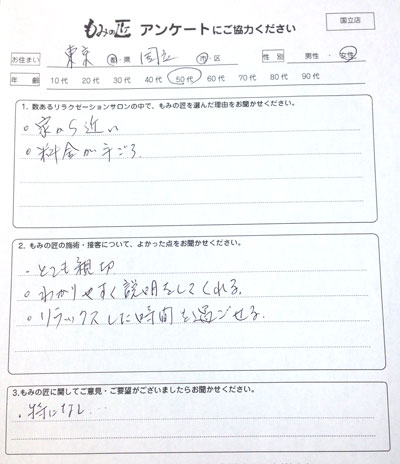 もみの匠 アンケートにご協力ください
国立店
お住まい 東京 都・県 国立 市・区 性別 男性・女性
年齢 10代 20代 30代 40代 50代 60代 70代 80代 90代
1. 数あるリラクゼーションサロンの中で、もみの匠を選んだ理由をお聞かせください。
○家から近い
○料金が手ごろ
2. もみの匠の施術・接客について、よかった点をお聞かせください。
・とても親切
○わかりやすく説明をしてくれる。
○リラックスした時間を過ごせる。
3.もみの匠に関してご意見・ご要望がございましたらお聞かせください。
・特になし…